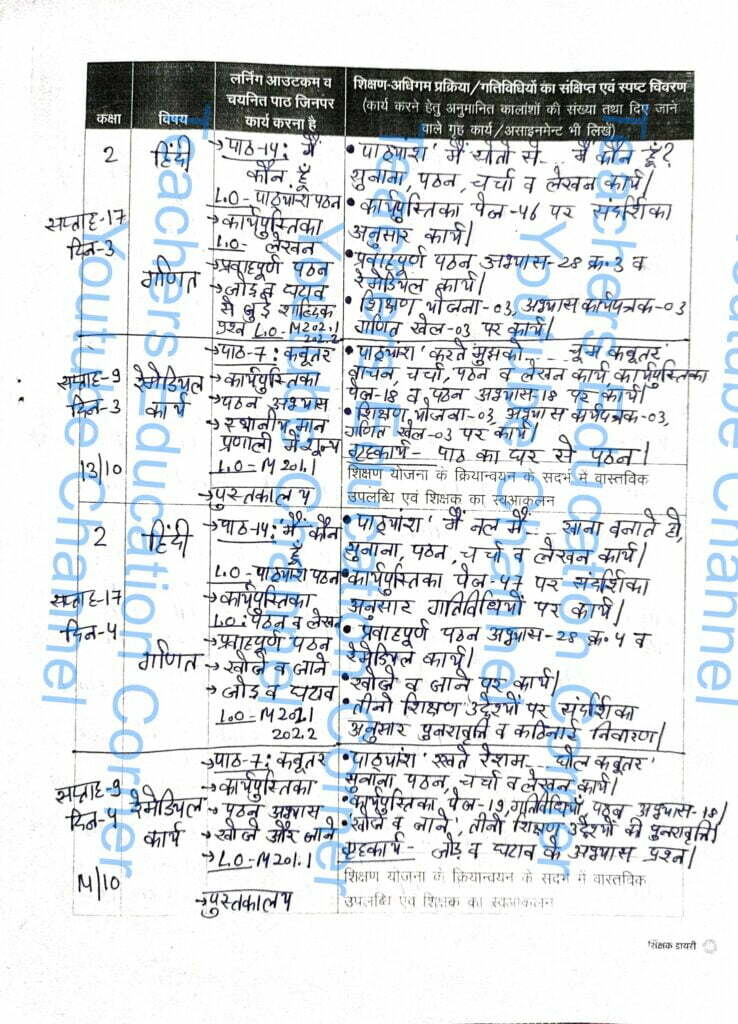 कक्षा
विषय
लर्निंग आउटकम व
चयनित पाठ जिनपर
कार्य करना है
शिक्षण-अधिगम प्रक्रिया/गतिविधियों का संक्षिप्त एवं स्पष्ट विवरण
(कार्य करने हेतु अनुमानित कालांशों की संख्या तथा दिए जाने
वाले गृह कार्य/असाइनमेन्ट भी लिखें)
2
सप्ताह-17
दिन-3
हिंदी
गणित
→पाठ-14: मैं
कौन हूँ
L.O-पाठ्यांश पठन
→कार्यपुस्तिका
L.O- लेखन
→प्रवाहपूर्ण पठन
→जोड़ व घटाव
से जुड़े शाब्दिक
प्रश्न L.O-M202.1
202.2
• पाठ्यांश' मैं खेतो से... मैं कौन हूँ?
सुनाना, पठन, चर्चा व लेखन कार्य|
• कार्यपुस्तिका पेज-46 पर संदर्शिका
अनुसार कार्य|
• प्रवाहपूर्ण पठन अभ्यास-28 क्र.3 व
रेमेडियल कार्य|
• शिक्षण योजना-03, अभ्यास कार्यपत्रक-03
गणित खेल-03 पर कार्य|
सप्ताह-9
दिन-3
13/10
रेमेडियल
कार्य
→पाठ-7: कबूतर
→कार्यपुस्तिका
→पठन अभ्यास
→स्थानीय मान
प्रणाली में शून्य
L.O-M201.1
→पुस्तकालय
• पाठ्यांश' करते मुझको.... चूम कबूतर'
वाचन, चर्चा, पठन व लेखन कार्य, कार्यपुस्तिका
पेज-18 व पठन अभ्यास-18 पर कार्य|
• शिक्षण योजना-03, अभ्यास कार्यपत्रक-03,
गणित खेल-03 पर कार्य|
गृहकार्य- पाठ का घर से पठन|
शिक्षण योजना के क्रियान्वयन के संदर्भ में वास्तविक
उपलब्धि एवं शिक्षक का स्वआकलन
2
सप्ताह-17
दिन-4
हिंदी
गणित
→पाठ-14: मैं कौन
हूँ
L.O-पाठ्यांश पठन
→कार्यपुस्तिका
L.O: पठन व लेखन
→प्रवाहपूर्ण पठन
→खोजें व जाने
→जोड़ व घटाव
L.O-M202.1
202.2
• पाठ्यांश' मैं नल में.... खाना बनाते हो,
सुनाना, पठन, चर्चा व लेखन कार्य|
• कार्यपुस्तिका पेज-47 पर संदर्शिका
अनुसार गतिविधियों पर कार्य|
• प्रवाहपूर्ण पठन अभ्यास-28 क्र.4 व
रेमेडियल कार्य|
• खोजें व जाने पर कार्य|
• तीनो शिक्षण उद्देश्यों पर संदर्शिका
अनुसार पुनरावृत्ति व कठिनाई निवारण|
सप्ताह-9
दिन-4
14/10
रेमेडियल
कार्य
→पाठ-7: कबूतर
→कार्यपुस्तिका
→पठन अभ्यास
→खोजें और जाने
→L.O-M201.1
→पुस्तकालय
• पाठ्यांश' रखते रेशम.... घोल कबूतर'
सुनाना पठन, चर्चा व लेखन कार्य|
• कार्यपुस्तिका पेज-19, गतिविधियों, पठन अभ्यास-18|
• 'खोजें व जाने', तीनो शिक्षण उद्देश्यों की पुनरावृत्ति|
गृहकार्य- जोड़ व घटाव के अभ्यास प्रश्न|
शिक्षण योजना के क्रियान्वयन के संदर्भ में वास्तविक
उपलब्धि एवं शिक्षक का स्वआकलन
शिक्षक डायरी
Teachers Education Corner
Youtube Channel
Teachers Education Corner
Youtube Channel
Teachers Education Corner
Youtube Channel